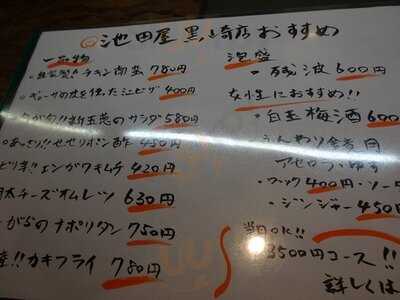 池田屋 黒崎店おすすめ
一品物
・自家製チキン南蛮 780円
・ギョーザの皮を使ったミニピザ 400円
が旬!!新玉葱のサラダ 580円
あっさり!!せせりポン酢 450円
ピリ辛!!エンガワキムチ 420円
明太チーズオムレツ 630円
ながらのナポリタン 750円
!!カキフライ 780円
泡盛
・残波 600円
女性におすすめ!!
・白玉梅酒 600
アセロラ・ゆず
・ロック 400円・ソー
・ジンジャー 450円
当日OK!!
3500円コース!!
詳しくは